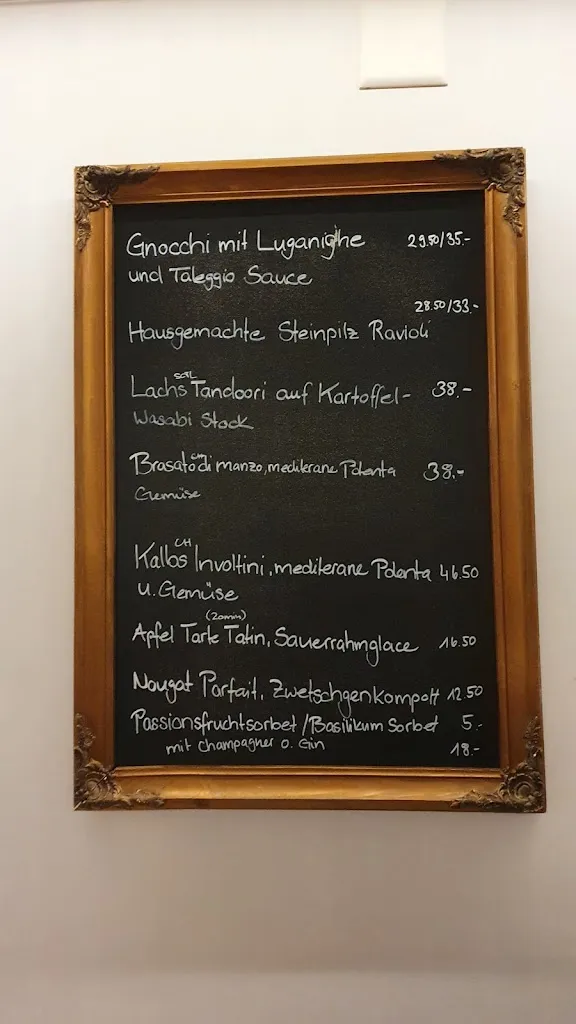 Gnocchi mit Luganighe 29.50/35.-
und Taleggio Sauce
28.50/33.-
Hausgemachte Steinpilz Ravioli
Lachs Tandoori auf Kartoffel- 38.-
Wasabi Stock
Brasato CH di manzo, mediterane Polenta 38.-
Gemüse
CH
Kalbs Involtini, mediterane Polenta 46.50
u. Gemüse
(20min)
Apfel Tarte Tatin, Sauerrahmglace 16.50
Nougat Parfait, Zwetschgenkompott 12.50
Passionsfruchtsorbet / Basilikum Sorbet 5.-
mit Champagner o. Gin 18.-